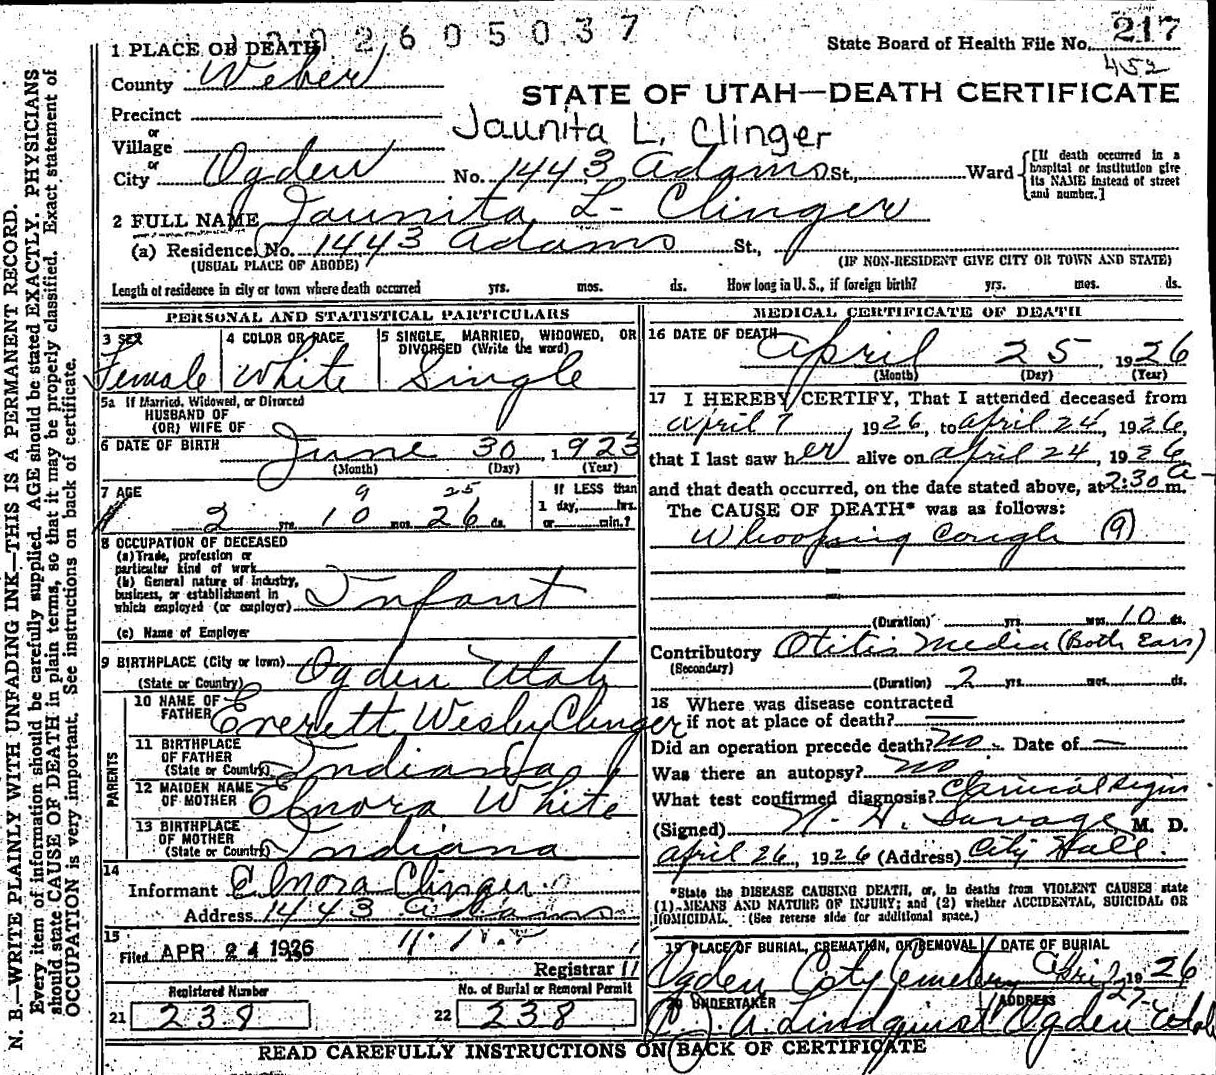 2605037
State Board of Health File No. 217
452
1 PLACE OF DEATH
County Weber
STATE OF UTAH—DEATH CERTIFICATE
Precinct
or
Village
Jaunita L. Clinger
or
City Ogden No. 1443 Adams St., Ward
[If death occurred in a hospital or institution give its NAME instead of street and number.]
2 FULL NAME Jaunita L. Clinger
(a) Residence. No. 1443 Adams St.,
(USUAL PLACE OF ABODE) (IF NON-RESIDENT GIVE CITY OR TOWN AND STATE)
Length of residence in city or town where death occurred yrs. mos. ds. How long in U. S., if foreign birth? yrs. mos. ds.
PERSONAL AND STATISTICAL PARTICULARS
3 SEX 4 COLOR OR RACE 5 SINGLE, MARRIED, WIDOWED, OR DIVORSED (Write the word)
Female White Single
5a If Married, Widowed, or Divorced
HUSBAND OF
(OR) WIFE OF
6 DATE OF BIRTH June 30 1923
(Month) (Day) (Year)
7 AGE 9 25 If LESS than
2 yrs. 10 mos. 26 ds. 1 day, hrs.
or min.?
8 OCCUPATION OF DECEASED
(a) Trade, profession or
particular kind of work
(b) General nature of Industry,
business, or establishment in
which employed (or employer) Infant
(c) Name of Employer
9 BIRTHPLACE (City or town) Ogden Utah
(State or Country)
PARENTS
10 NAME OF
FATHER Everett Wesley Clinger
11 BIRTHPLACE
OF FATHER
(State or Country) Indiana
12 MAIDEN NAME
OF MOTHER Elnora White
13 BIRTHPLACE
OF MOTHER
(State or Country) Indiana
14
Informant Elnora Clinger
Address 1443 Adams
15
Filed APR 24 1926
Registrar
Registered Number No. of Burial or Removal Permit
21 238 22 238
MEDICAL CERTIFICATE OF DEATH
16 DATE OF DEATH April 25, 1926
(Month) (Day) (Year)
17 I HEREBY CERTIFY, That I attended deceased from
April 7, 1926, to April 24, 1926,
that I last saw her alive on April 24, 1926
and that death occurred, on the date stated above, at 2:30 a m.
The CAUSE OF DEATH* was as follows:
Whooping Cough (9)
(Duration) yrs. mos. 10 ds.
Contributory Otitis Media (Both Ears)
(Secondary)
(Duration) 2 yrs. mos. ds.
18 Where was disease contracted
if not at place of death?
Did an operation precede death? No. Date of —
Was there an autopsy? No
What test confirmed diagnosis? Clinical signs.
(Signed) Savage M. D.
April 26, 1926 (Address) City Hall.
*State the DISEASE CAUSING DEATH, or, in deaths from VIOLENT CAUSES state
(1) MEANS AND NATURE OF INJURY; and (2) whether ACCIDENTAL, SUICIDAL OR
HOMICIDAL. (See reverse side for additional space.)
19 PLACE OF BURIAL, CREMATION, OR REMOVAL DATE OF BURIAL
Ogden City Cemetery April 27 1926
20 UNDERTAKER ADDRESS
A. Lindquist Ogden Utah
READ CAREFULLY INSTRUCTIONS ON BACK OF CERTIFICATE
N. B.—WRITE PLAINLY WITH UNFADING INK—THIS IS A PERMANENT RECORD.
Every item of information should be carefully supplied. AGE should be stated EXACTLY. PHYSICIANS
should state CAUSE OF DEATH in plain terms, so that it may be properly classified. Exact statement of
OCCUPATION is very important. See instructions on back of certificate.